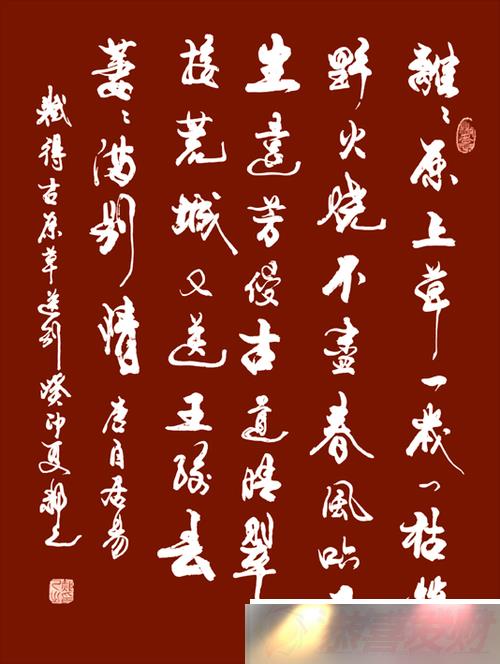 離〻原上草一歲一枯
野火燒不盡春風吹
生遠芳侵古道晴翠
接荒城又送王孫去
萋〻滿別情 唐白居易
賦得古原草送別 癸 仲夏
恭喜发财